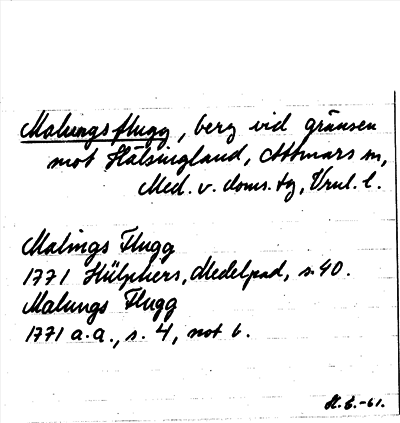 Malungsflugg, berg vid gränsen
mot Hälsingland, Attmars sn,
Med. v. doms. tg, Vnrl. l.
Malings Flugg
1771 Hülphers, Medelpad, s. 40.
Malungs Flugg
1771 a.a., s. 4, not 6.
H. E. -61.